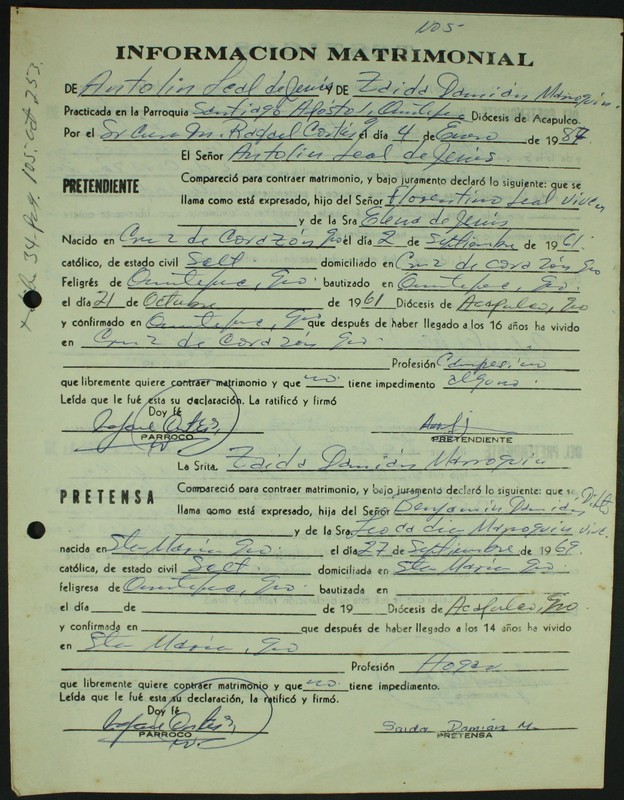 105-
INFORMACION MATRIMONIAL
DE Antolin Leal de Jesús Y DE Zaida Damián Marroquín.
Practicada en la Parroquia Santiago Apóstol, Ometepec Diócesis de Acapulco.
Por el Sr Cura M. Rafael Cortés el día 4 de Enero de 1987
El Señor Antolin Leal de Jesús
PRETENDIENTE
Compareció para contraer matrimonio, y bajo juramento declaró lo siguiente: que se
llama como está expresado, hijo del Señor Florentino Leal vive
y de la Sra Elena de Jesús
Nacido en Cruz de Corazón Gro el día 2 de Septiembre de 1961.
católico, de estado civil Solt domiciliado en Cruz de corazón Gro
Feligrés de Ometepec, Gro. bautizado en Ometepec, Gro.
el día 21 de Octubre de 1961 Diócesis de Acapulco, Gro
y confirmado en Ometepec, Gro que después de haber llegado a los 16 años ha vivido
en Cruz de Corazón Gro.
Profesión Campesino
que libremente quiere contraer matrimonio y que no tiene impedimento alguno.
Leída que le fué esta su declaración. La ratificó y firmó
Doy fé
PARROCO
PRETENDIENTE
La Srita. Zaida Damián Marroquín
PRETENSA
Compareció para contraer matrimonio, y bajo juramento declaró lo siguiente: que se
llama como está expresado, hijo del Señor Benjamín Damián
y de la Sra. Leocadia Marroquín vive.
nacida en Sta María Gro. el día 27 de Septiembre de 1969.
católica, de estado civil Solt domiciliada en Sta María Gro.
feligresa de Ometepec, Gro bautizada en
el día de de 19 Diócesis de Acapulco, Gro.
y confirmada en que después de haber llegado a los 14 años ha vivido
en Sta María, Gro
Profesión Hogar
que libremente quiere contraer matrimonio y que no. tiene impedimento.
Leída que le fué esta su declaración, la ratificó y firmó.
Doy fé
PARROCO
Saida Damián M.
PRETENSA